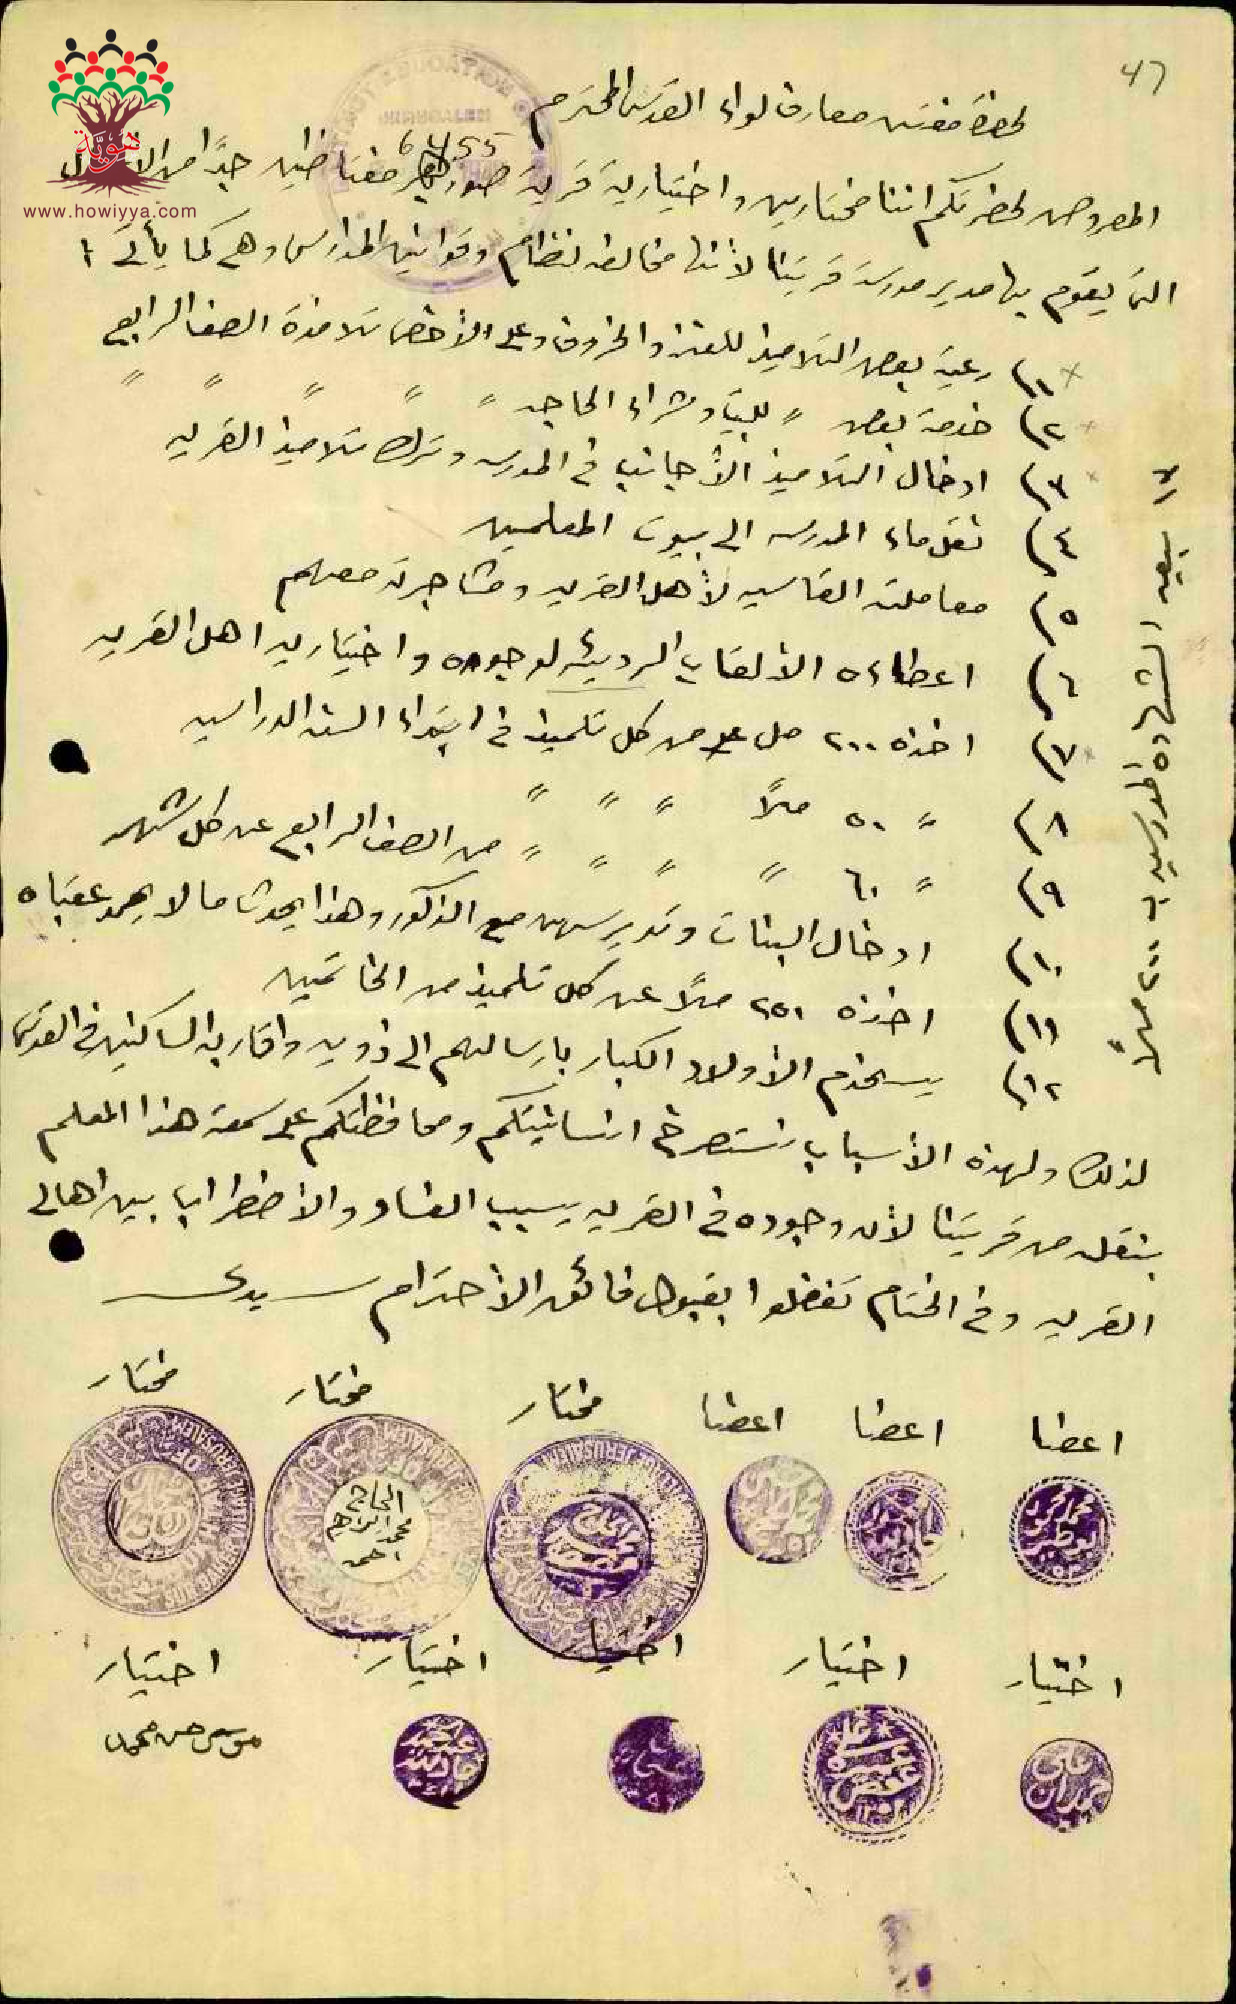 47
هوية
www.howiyya.com
لحضرة مفتش معارف لواء القدس المحترم
6455
المعروض لحضرتكم اننا مختارين واختيارية قرية صور باهر مغتاظين جداً من الاعمال
التي يقوم بها مدير مدرسة قريتنا لأنها مخالفه لنظام وقوانين المدارس وهي كما يأتي :
١) رعية بعض التلاميذ للعنز والخروف وعلى الأخص تلامذة الصف الرابع
٢) خدمة بعض " للبيت وشراء الحاجه " " " " "
٣) ادخال التلاميذ الأجانب في المدرسه وترك تلاميذ القريه
٤) نقل ماء المدرسه الى بيوت المعلمين
٥) معاملته القاسيه لأهل القريه ومشاجرته معهم
٦) اعطاءه الألقاب الرديئه لوجوه واختياريه اهل القريه
٧) اخذه ٢٠٠ مل من كل تلميذ في ابتداء السنه الدراسيه
٨) " ٥٠ ملاً " " "
٩) " ٦٠ " " " " من الصف الرابع عن كل شهر
١٠) ادخال البنات وتدريسهن مع الذكور وهذا يحدث ما لا يحمد عقباه
١١) اخذه ٢٥٠ ملاً عن كل تلميذ من الخاتمين
١٢) يستخدم الأولاد الكبار بإرسالهم الى ذويه واقاربه الساكنين في القدس
يبيع الشهاده المدرسيه ب ٢٠٠ ملاً
لذلك ولهذه الأسباب نسترحم انسانيتكم ومحافظتكم على سمعة هذا المعلم
بنقله من قريتنا لأن وجوده في القريه يسبب الفساد والاضطراب بين اهالي
القريه وفي الختام تفضلوا بقبول فائق الأحترام سيدي
اعضا اعضا اعضا مختار مختار مختار
الحاج
محمد ابراهيم
احمد
اختيار اختيار اختيار اختيار اختيار
علي
حمدان
موسى حسن محمد